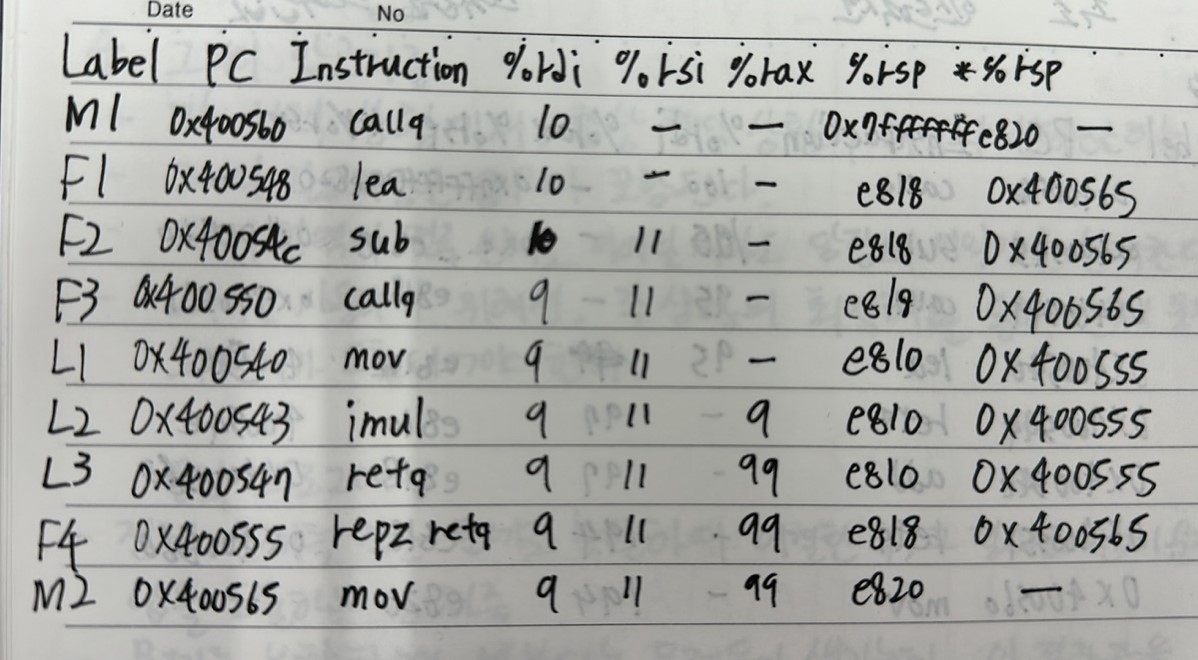 Date No
Label PC Instruction %rdi %rsi %rax %rsp *%rsp
M1 0x400560 callq 10 — — 0x7fffffffe820 —
F1 0x400548 lea 10 — — e818 0x400565
F2 0x40054c sub 10 11 — e818 0x400565
F3 0x400550 callq 9 11 — e818 0x400565
L1 0x400540 mov 9 11 — e810 0x400555
L2 0x400543 imul 9 11 9 e810 0x400555
L3 0x400547 retq 9 11 99 e810 0x400555
F4 0x400555 repz retq 9 11 99 e818 0x400565
M2 0x400565 mov 9 11 99 e820 —